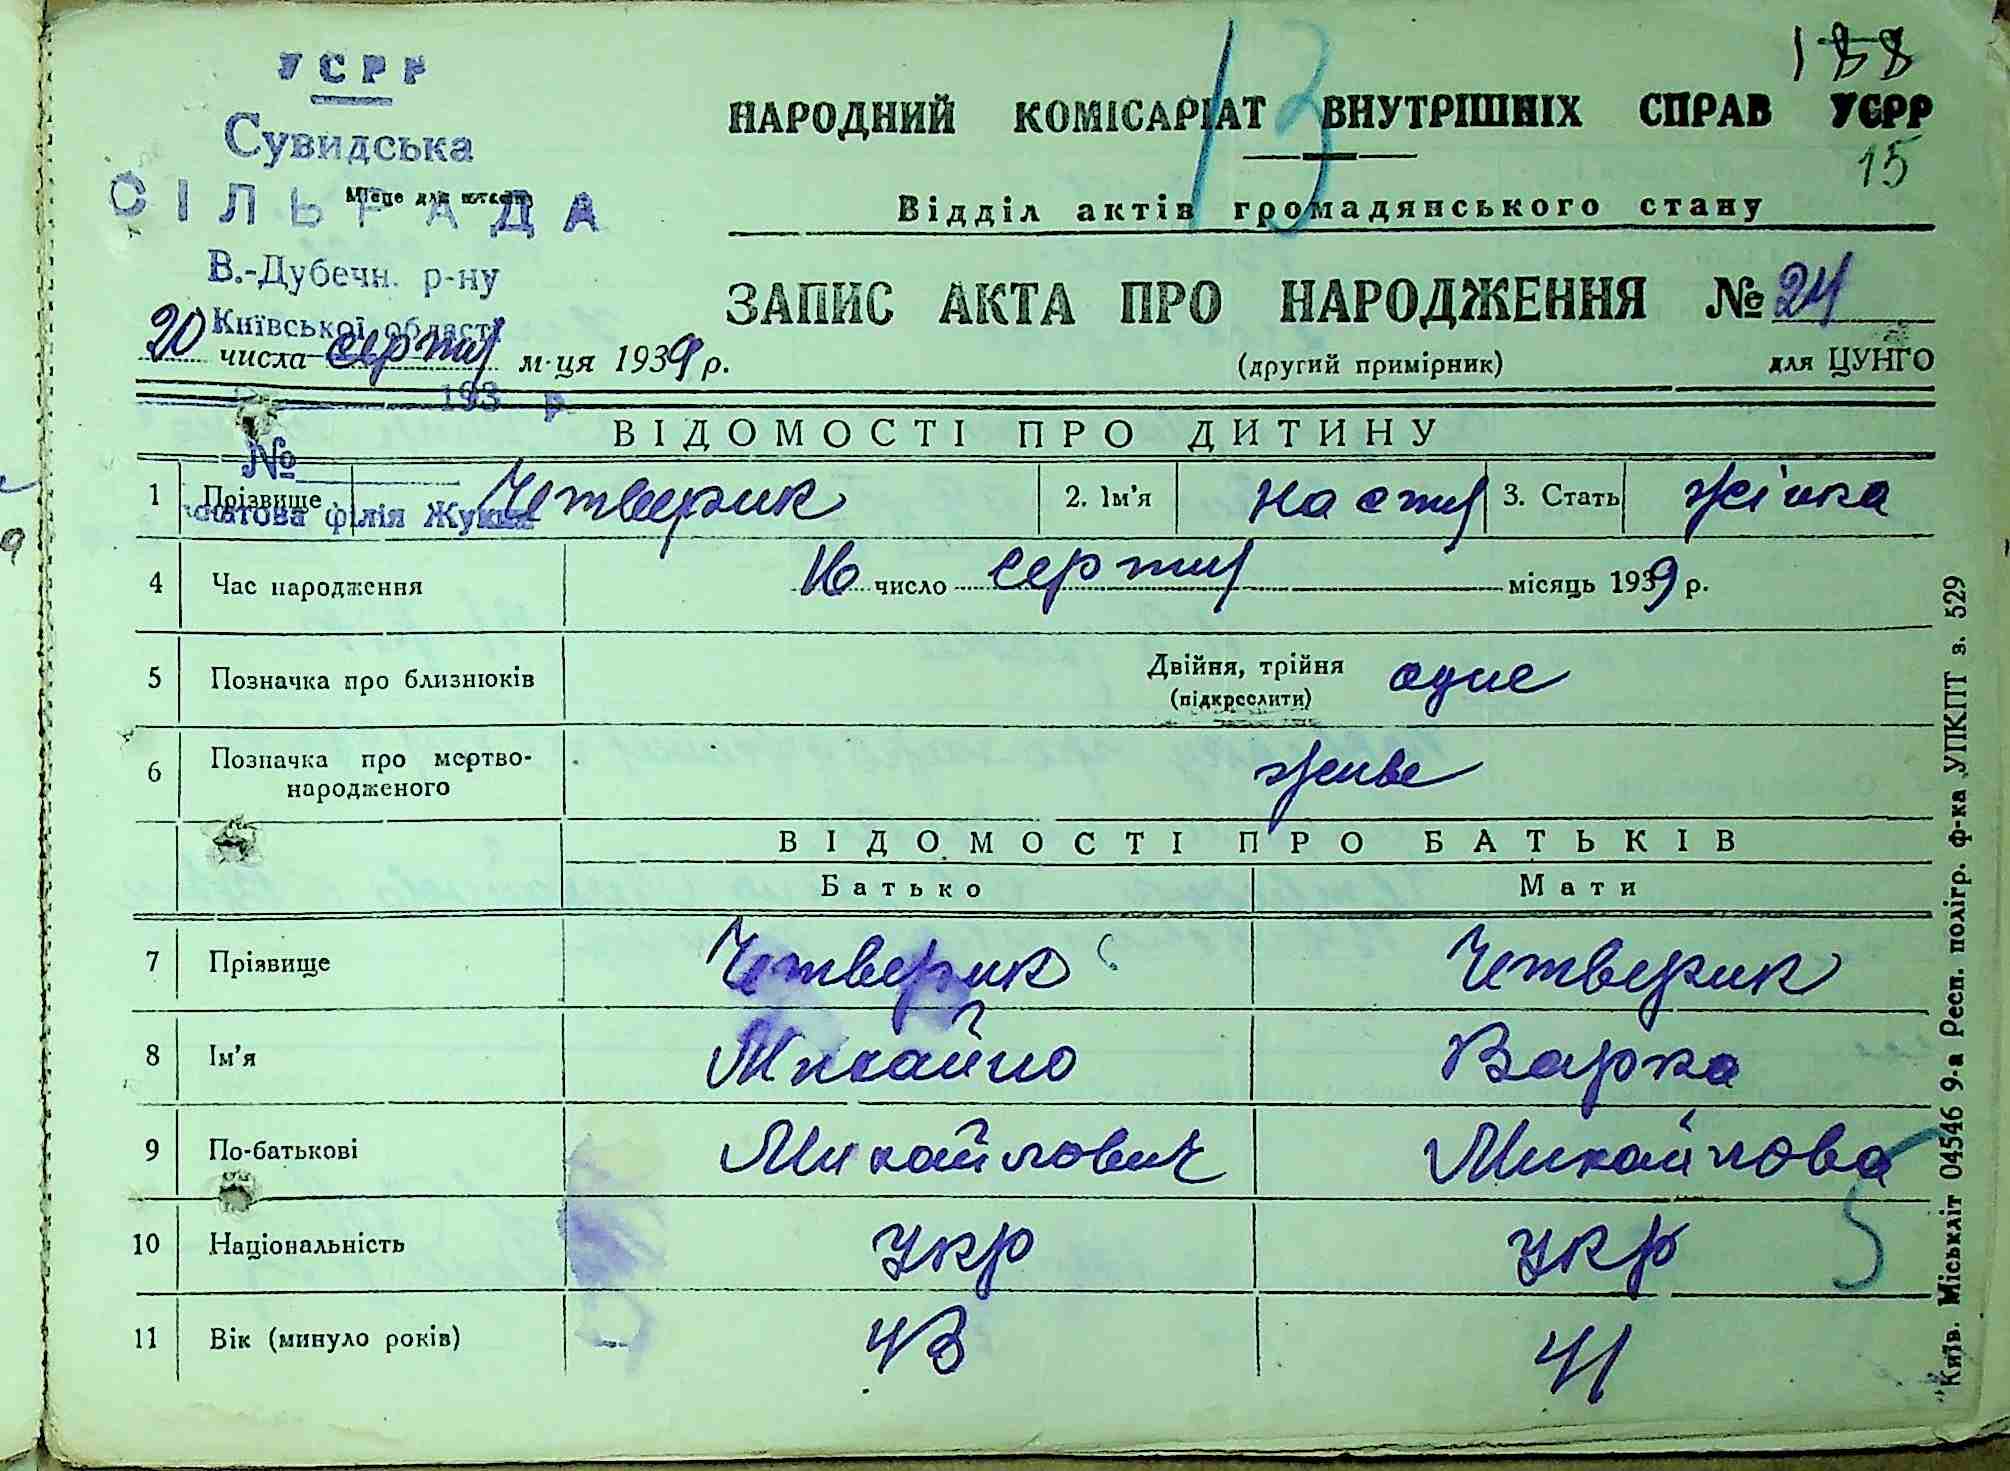 УСРР
Сувидська
СІЛЬРАДА
Місце для штампу
В.-Дубечн. р-ну
Київської області
193 р.
№
поштова філія Жукин
13
188
15
НАРОДНИЙ КОМІСАРІАТ ВНУТРІШНІХ СПРАВ УСРР
Відділ актів громадянського стану
ЗАПИС АКТА ПРО НАРОДЖЕННЯ № 24
20 числа серпня м-ця 1939 р.
(другий примірник) для ЦУНГО
ВІДОМОСТІ ПРО ДИТИНУ
1 Прізвище Четверик 2. Ім'я Настя 3. Стать жінка
4 Час народження 16 число серпня місяць 1939 р.
5 Позначка про близнюків Двійня, трійня одне
(підкреслити)
6 Позначка про мертво-
народженого живе
ВІДОМОСТІ ПРО БАТЬКІВ
Батько Мати
7 Прізвище Четверик Четверик
8 Ім'я Михайло Варка
9 По-батькові Михайлович Михайлова
10 Національність Укр Укр
5
11 Вік (минуло років) 43 41
Київ. Міськліт 04546 9-а Респ. полігр. ф-ка УПКПТ з. 529